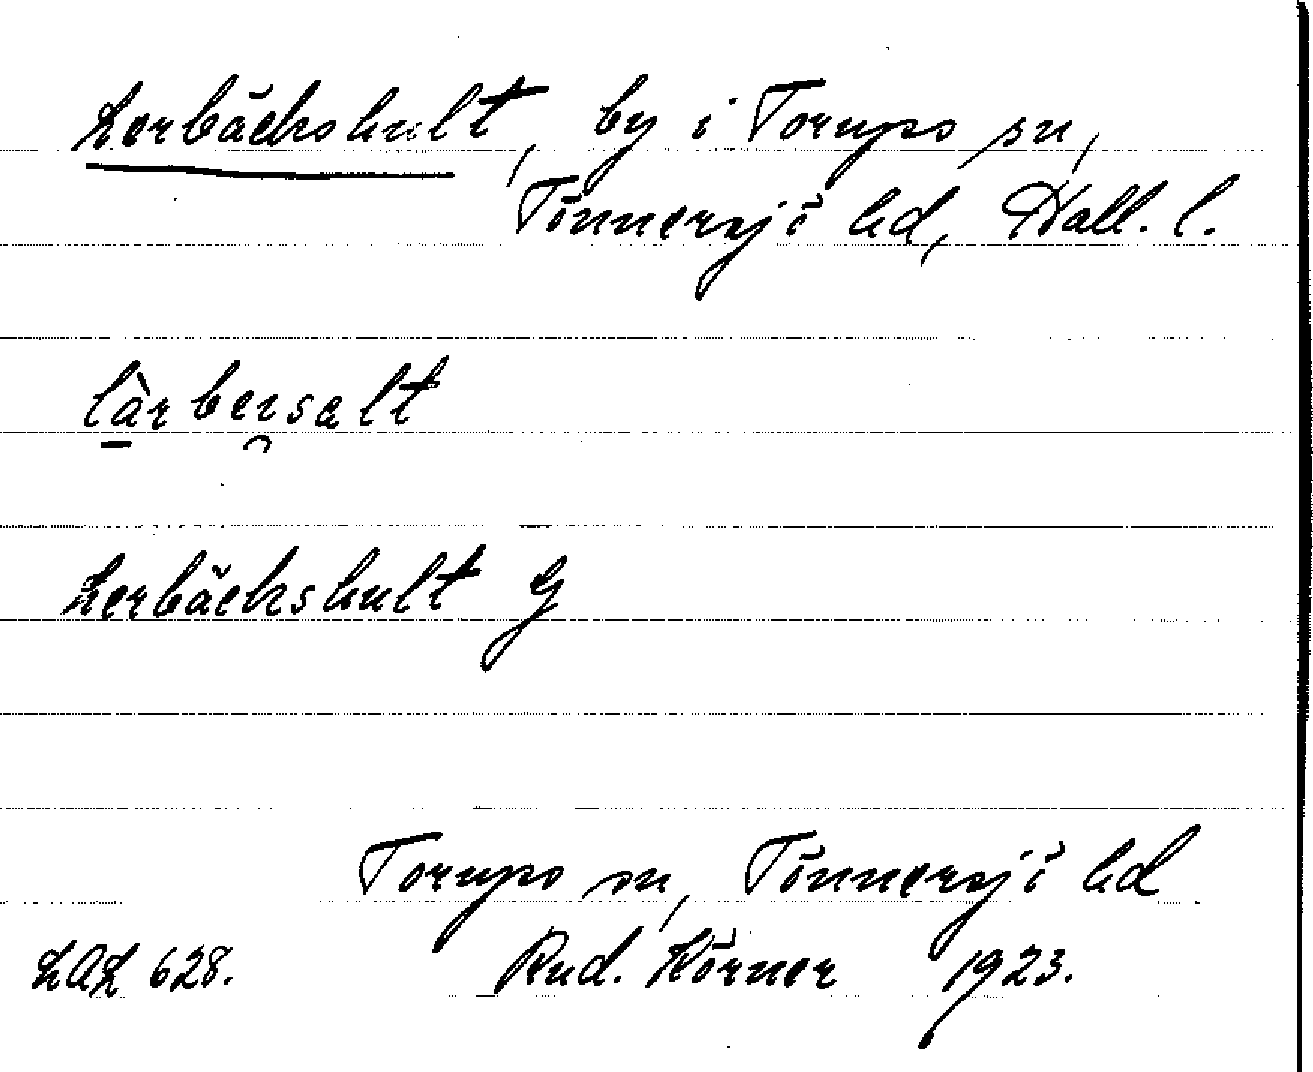 Lerbäckshult, by i Torups sn,
Tönnersjö hd, Hall. l.
làrbersalt
Lerbäckshult G
Torups sn, Tönnersjö hd
LAL 628. Rud. Körner 1923.